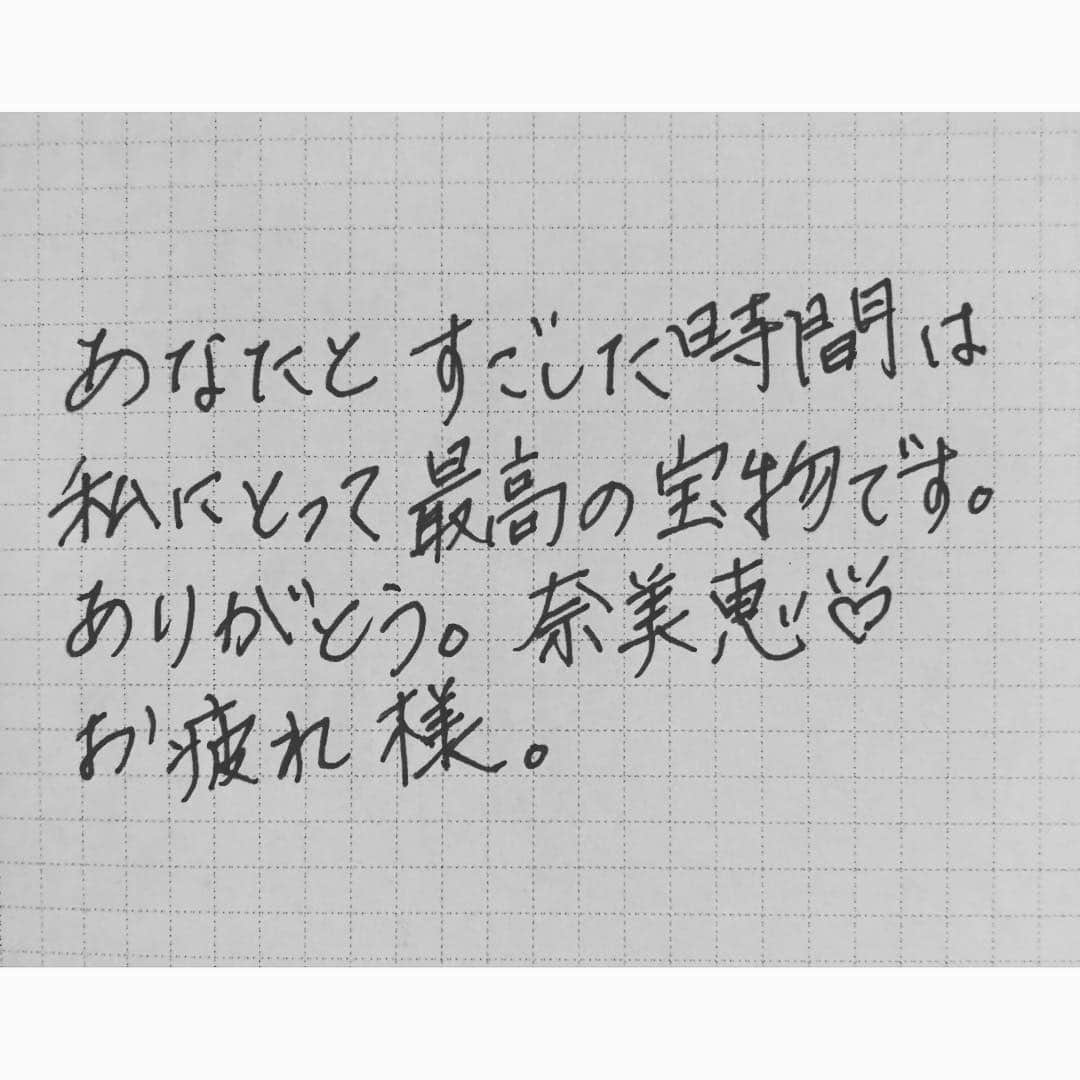 あなたと すごした時間は
私にとって最高の宝物です。
ありがとう。奈美恵♡
お疲れ様。